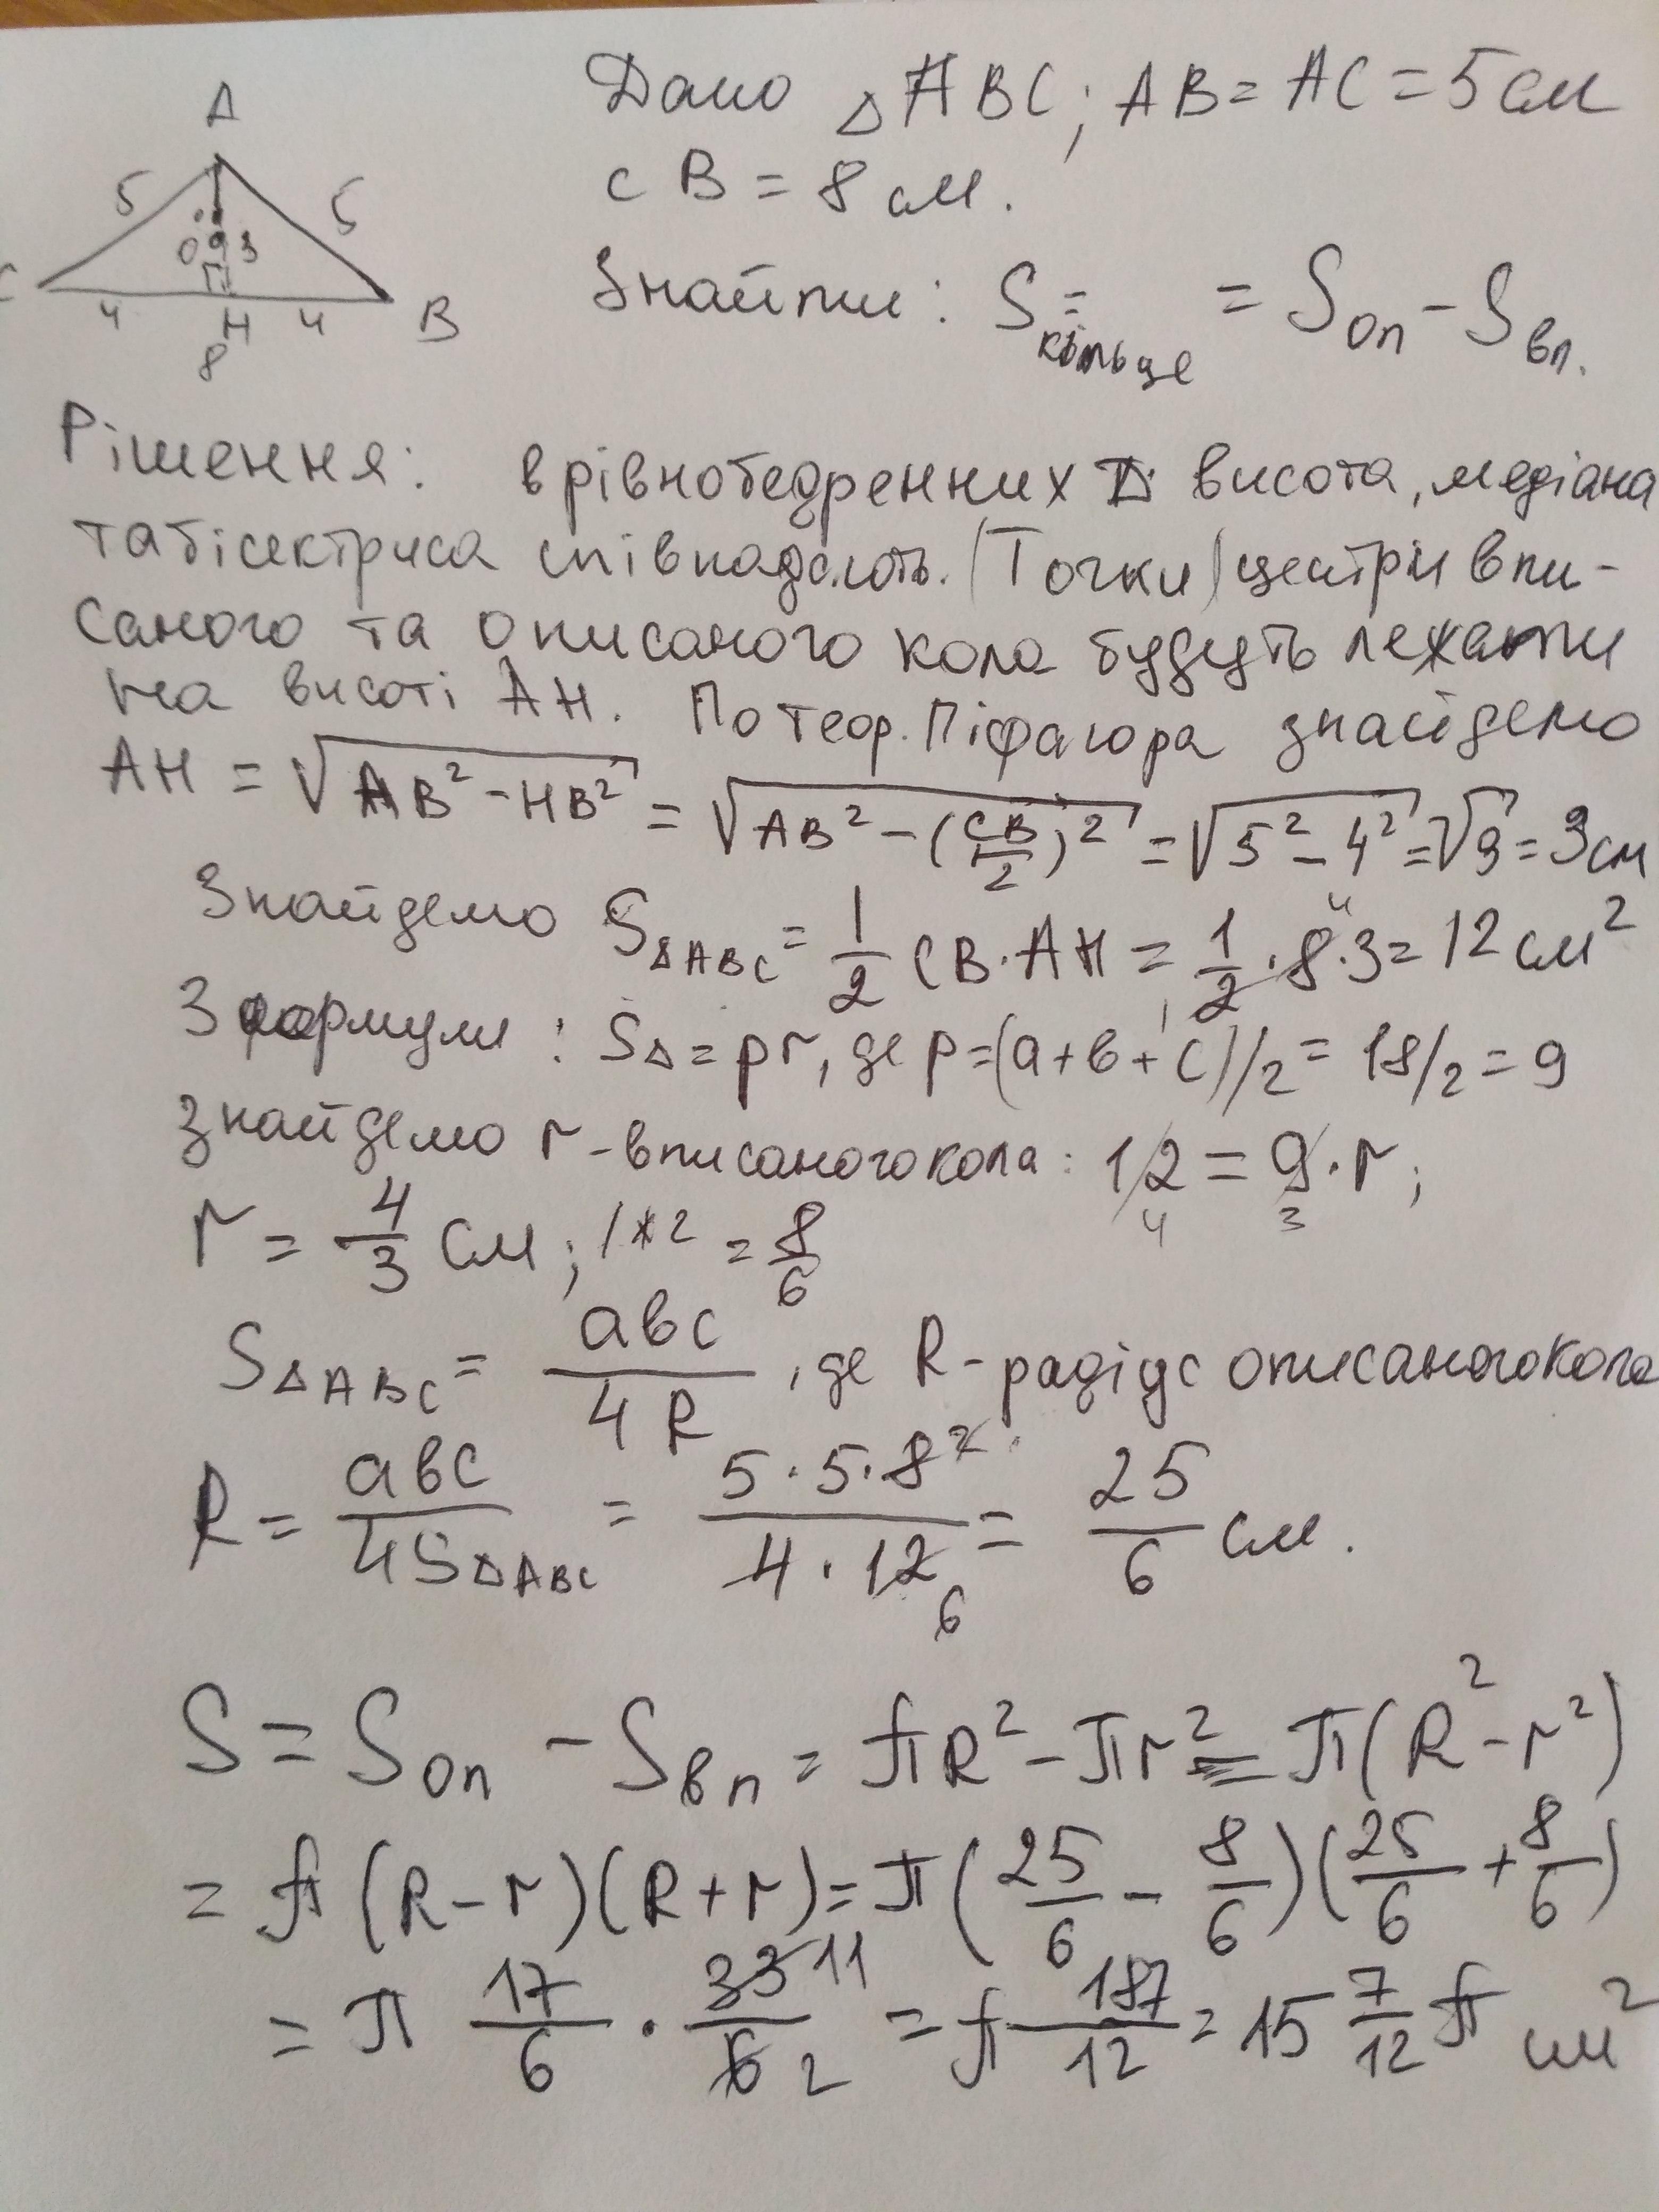 Дано △ABC; AB = AC = 5 см
CB = 8 см.
Знайти: S кільце = Sоп - Sвп.
A
5 5
O 3
C 4 H 4 B
8
Рішення: в рівнобедренних △ висота, медіана
та бісектриса співпадають. (Точки) центри впи-
саного та описаного кола будуть лежати
на висоті AH. По теор. Піфагора знайдемо
AH = √(AB² - HB²) = √(AB² - (CB/2)²) = √(5² - 4²) = √9 = 3 см
Знайдемо S△ABC = 1/2 CB · AH = 1/2 · 8 · 3 = 12 см²
З формули: S△ = pr, де p = (a + b + c)/2 = 18/2 = 9
знайдемо r - вписаного кола: 12 = 9 · r;
r = 4/3 см; /*2 = 8/6
S△ABC = abc/4R, де R - радіус описаного кола
R = abc/4S△ABC = 5·5·8/4·12 = 25/6 см.
S = Sоп - Sвп = πR² - πr² = π(R² - r²)
= π(R - r)(R + r) = π(25/6 - 8/6)(25/6 + 8/6)
= π 17/6 · 33/6 = π 187/12 = 15 7/12 π см²